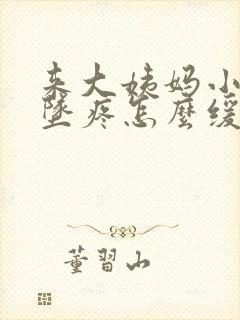 来大姨妈小
坠疼怎麽缓
董習山